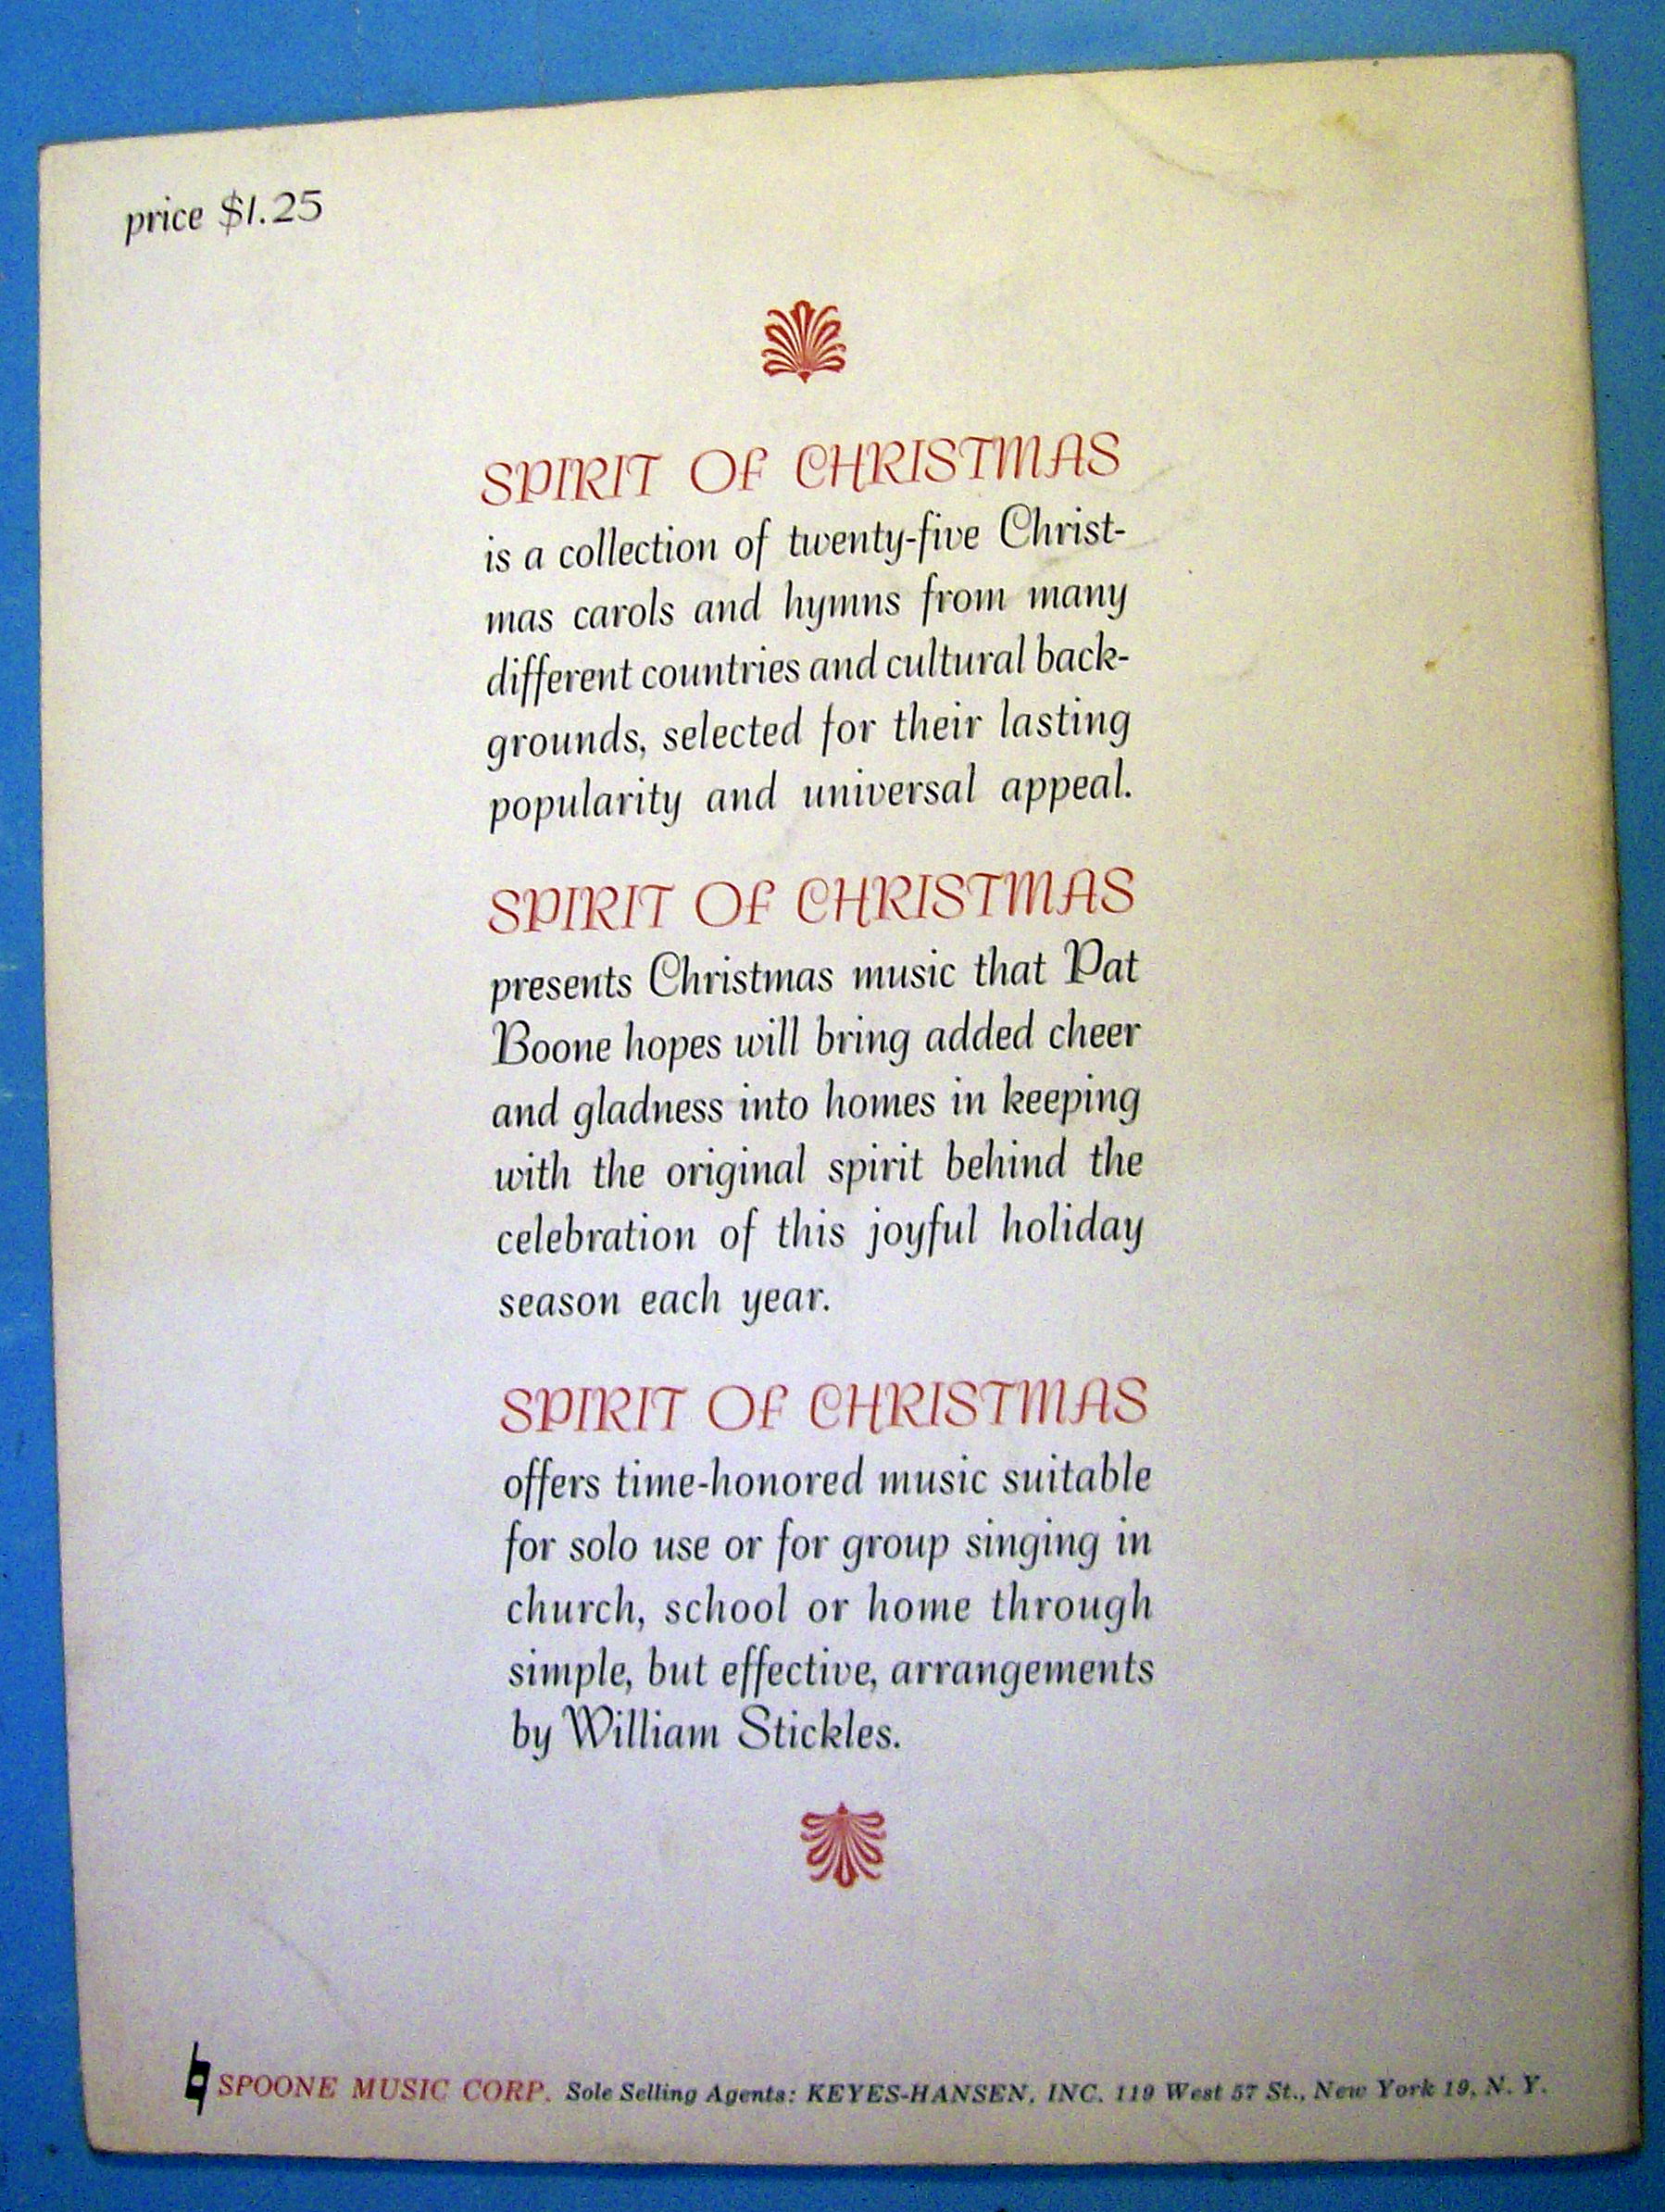 price $1.25
SPIRIT OF CHRISTMAS
is a collection of twenty-five Christ-
mas carols and hymns from many
different countries and cultural back-
grounds, selected for their lasting
popularity and universal appeal.
SPIRIT OF CHRISTMAS
presents Christmas music that Pat
Boone hopes will bring added cheer
and gladness into homes in keeping
with the original spirit behind the
celebration of this joyful holiday
season each year.
SPIRIT OF CHRISTMAS
offers time-honored music suitable
for solo use or for group singing in
church, school or home through
simple, but effective, arrangements
by William Stickles.
SPOONE MUSIC CORP. Sole Selling Agents: KEYES-HANSEN, INC. 119 West 57 St., New York 19, N. Y.